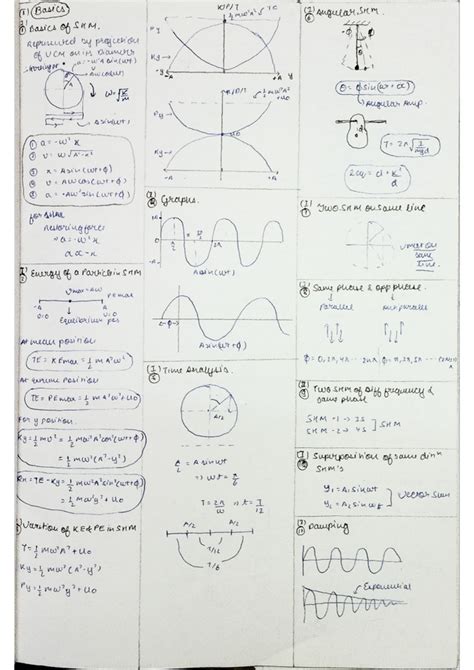 Basics
Basics of SHM.
Represented by projection
of UCM on its diameter
a = -ω²A sin(ωt+ϕ)
Aω cos(ωt)
ω = √(K/m)
A sin(ωt)
① a = -ω² x
② v = ω√(A²-x²)
③ x = A sin(ωt+ϕ)
④ v = Aω cos(ωt+ϕ)
⑤ a = -Aω² sin(ωt+ϕ)
for SHM
restoring force
→ a = -ω² x
a ∝ -x
Energy of a Particle in SHM
Vmax = Aω
PE max
-A +A
U=0 U=0
Equilibrium pos
At mean position
TE = KEmax = ½ m A²ω²
At extreme position
TE = PEmax = ½ m A²ω² + U₀
For y position
Ky = ½ mv² = ½ mω²A² cos²(ωt+ϕ)
= ½ mω²(A²-y²)
= ½ mω²A² sin²(ωt+ϕ) + U₀
= ½ mω²y² + U₀
Variation of KE & PE in SHM
T = ½ mω²A² + U₀
Ky = ½ mω²(A²-y²)
Py = ½ mω²y² + U₀
K/P/T
½ mω²A² TE
Py
Ky
-A +A y
K/P/T
½ mω²A² + U₀
Py
U₀
Ky
-A +A
Graphs.
A sin(ωt)
←ϕ→
A sin(ωt+ϕ)
Time Analysis.
A/2 = A sin ωt
ωt = π/6
T = 2π/ω ⇒ t = T/12
A/2 A/2
T/12
T/6
Angular SHM.
θ = ϕ sin(ωt+α)
Angular Amp.
T = 2π√(I/mgd)
Two SHM on same line
v motion
same
line.
Same phase & opp phase.
Parallel Antiparallel
Two SHM of Diff frequency &
same phase
SHM - 1 → 3S
SHM - 2 → 4S
] SHM
Superposition of same dirⁿ
SHM's
y₁ = A₁ sin ωt
y₂ = A₂ sin ωt
Vector Sum
Damping
Exponential